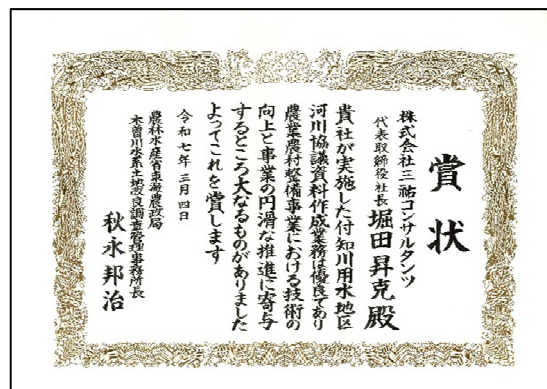 賞状
株式会社三祐コンサルタンツ
代表取締役社長 堀田昇克殿
貴社が実施した付知川用水地区
河川協議資料作成業務は優良であり
農業農村整備事業における技術の
向上と事業の円滑な推進に寄与
するところ大なるものがありました
よってこれを賞します
令和七年三月四日
農林水産省東海農政局
木曽川水系土地改良調査管理事務所長
秋永邦治